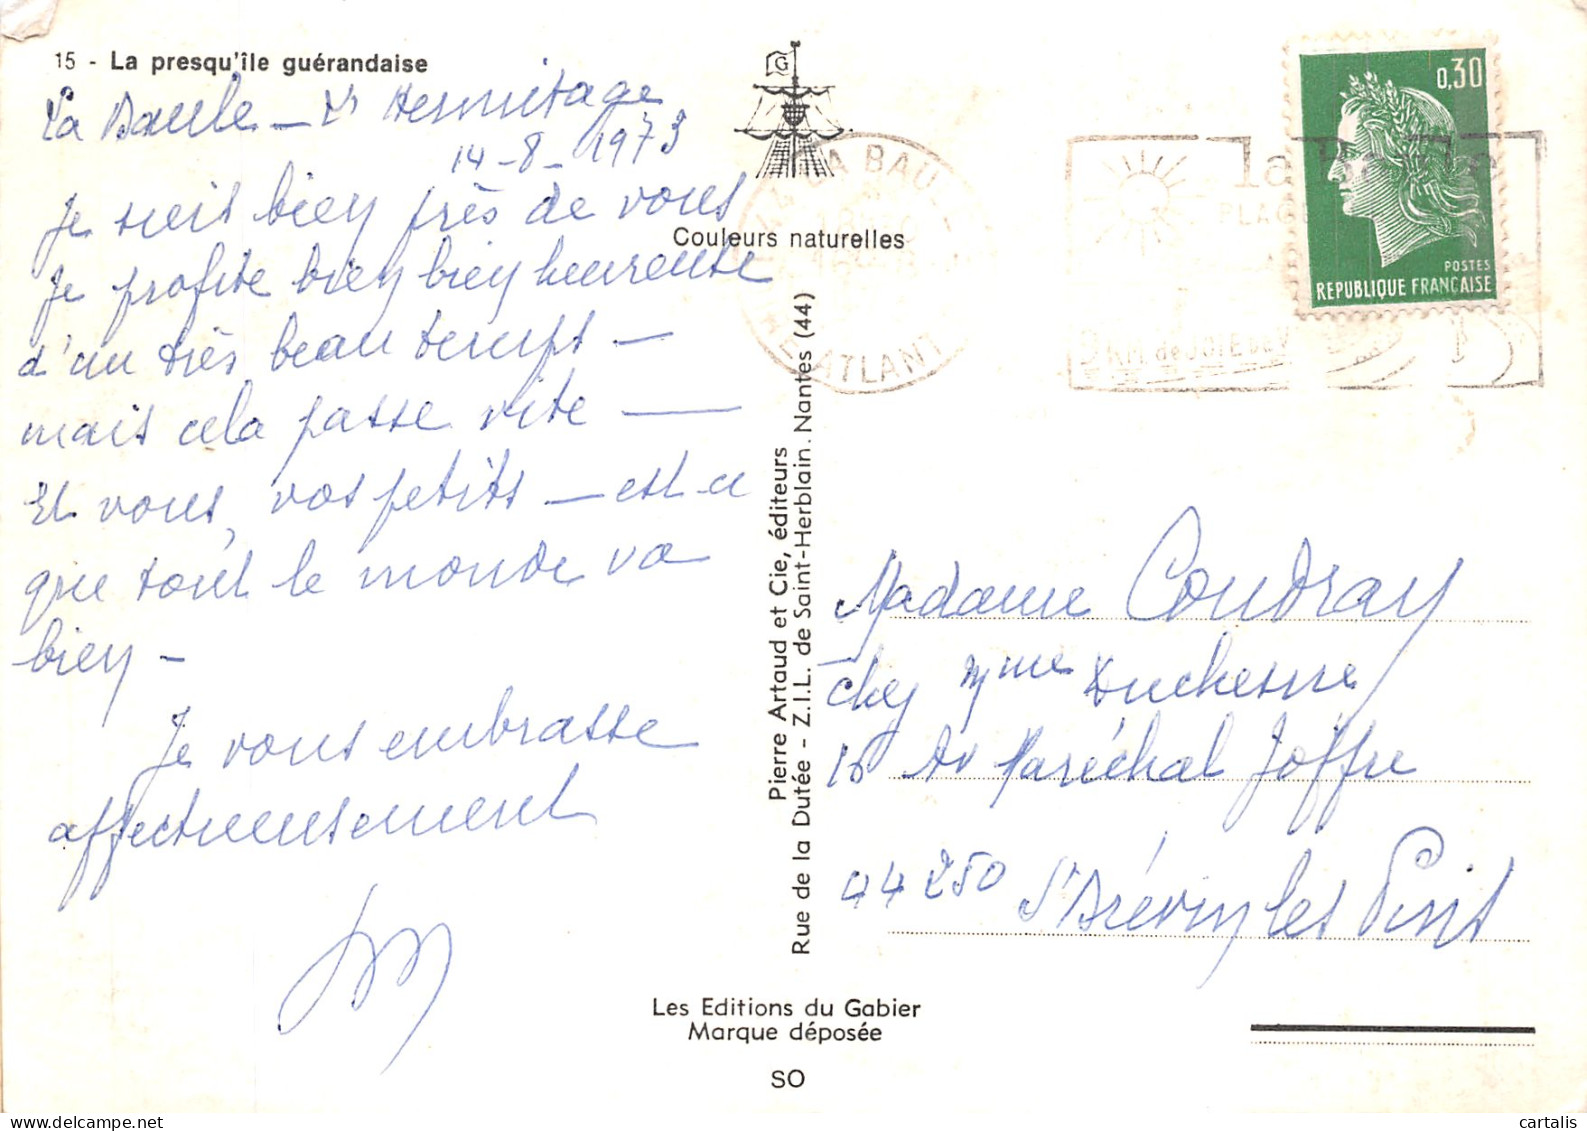 15 - La presqu'île guérandaise
La Baule - L' Hermitage
14-8-1973
Je suis bien près de vous
Je profite bien bien heureuse
d'un très beau temps -
mais cela passe vite -
Et vous, vos petits - est-ce
que tout le monde va
bien -
Je vous embrasse
affectueusement
G
Couleurs naturelles
Pierre Artaud et Cie, éditeurs
Rue de la Dutée - Z.I.L. de Saint-Herblain. Nantes (44)
Les Editions du Gabier
Marque déposée
SO
LA BAULE
ATLANT
la Baule
PLAGE
9 KM de JOIE DE V
0,30
POSTES
REPUBLIQUE FRANÇAISE
Madame Coudray
chez Mme Duchesne
16 Av Maréchal Joffre
44250 St Brévin les Pins
cartalis